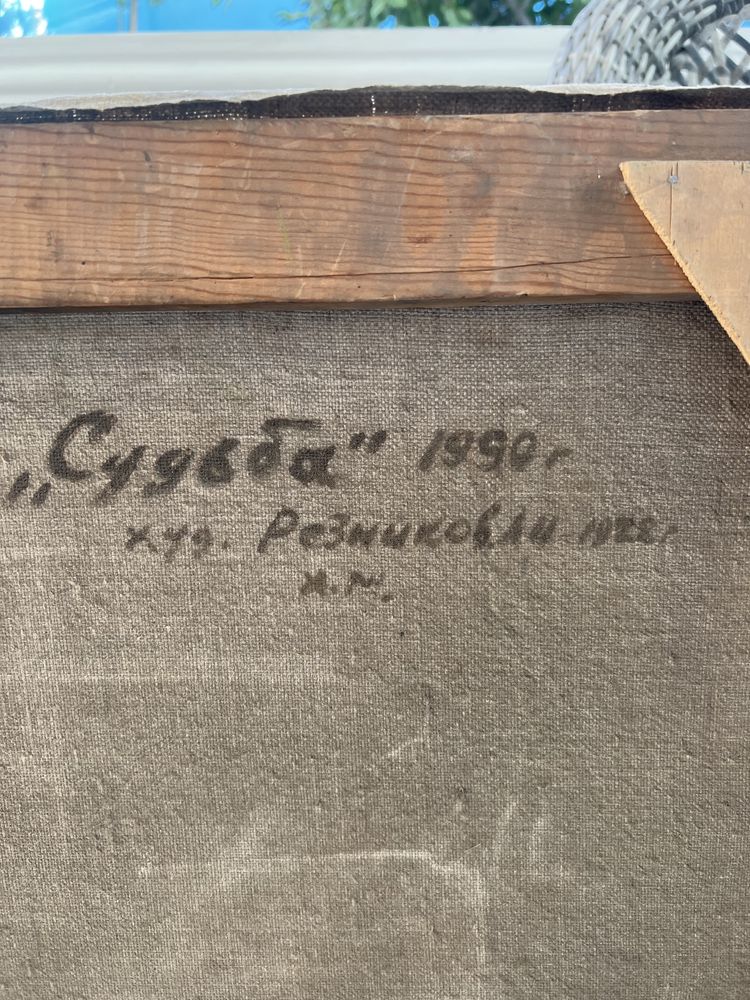 „Судьба" 1990 г
худ. Резниковли 1928 г